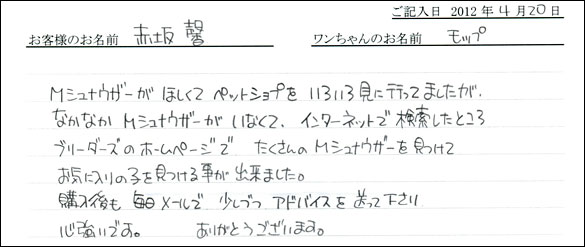 ご記入日 2012年4月20日
お客様のお名前 赤坂 馨 ワンちゃんのお名前 モップ
Mシュナウザーが ほしくて ペットショップを いろいろ見に行ってましたが、
なかなか Mシュナウザーが いなくて、インターネットで 検索したところ
ブリーダーズの ホームページで たくさんの Mシュナウザーを 見つけて
お気に入りの子を 見つける事が 出来ました。
購入後も 毎日 メールで 少しづつ アドバイスを 送って下さり
心強いです。 ありがとうございます。